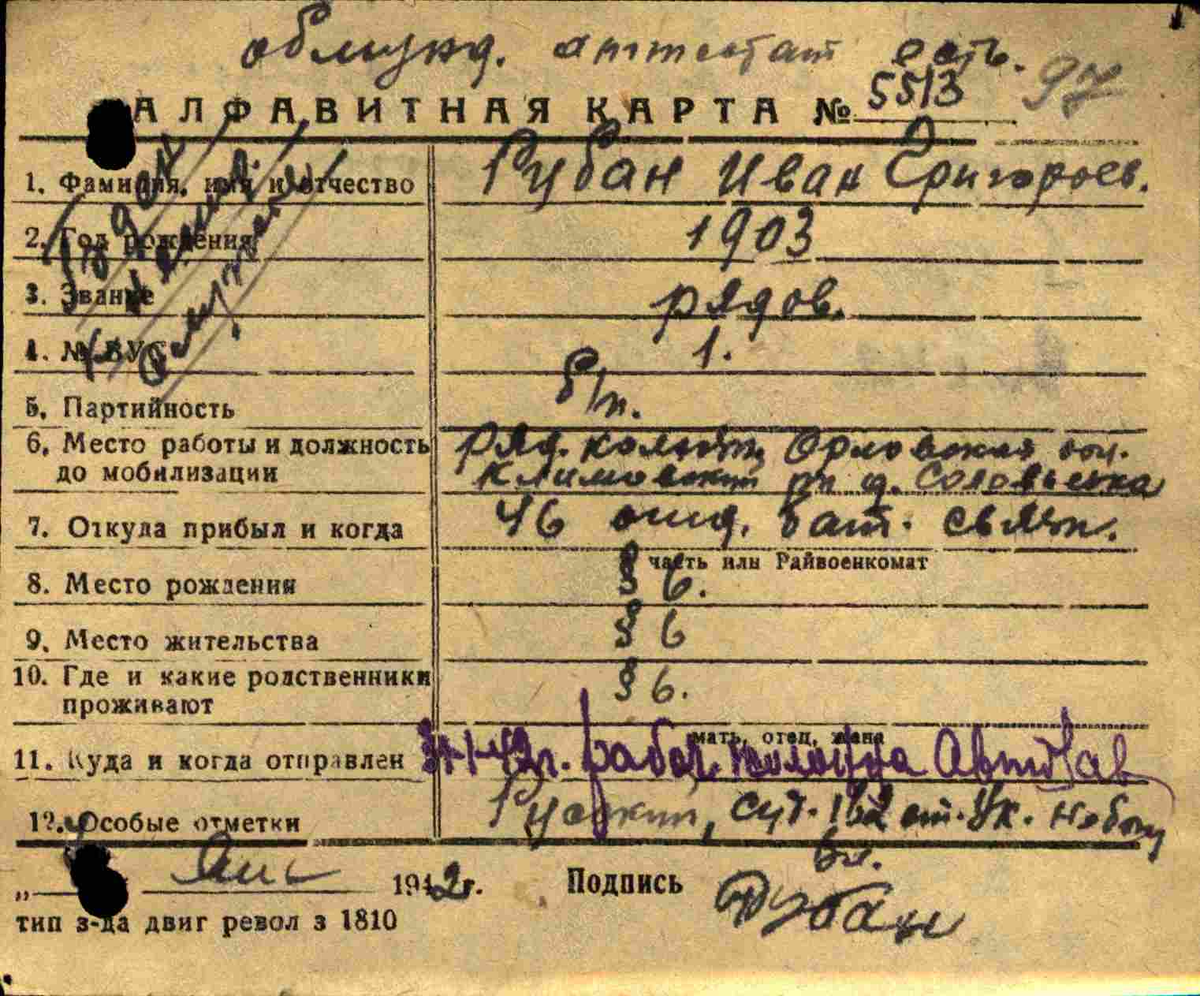 обмунд. аттестат есть.
АЛФАВИТНАЯ КАРТА № 5513 97
Годен
к нестр.
службе
1. Фамилия, имя и отчество Рубан Иван Григорьев.
2. Год рождения 1903
3. Звание рядов.
4. № ВУС 1.
5. Партийность б/п.
6. Место работы и должность до мобилизации
ряд. колхоз. Орловская обл.
Климовский рн д. Соловьевка
7. Откуда прибыл и когда 46 бат. связи.
часть или Райвоенкомат
8. Место рождения § 6.
9. Место жительства § 6
10. Где и какие родственники проживают § 6.
мать, отец, жена
11. Куда и когда отправлен 31-1-42г. рабоч. колонна
12. Особые отметки Русский, суд. 162 ст. Ук.
„ Янв 1942г. Подпись Рубан
тип з-да двиг револ з 1810